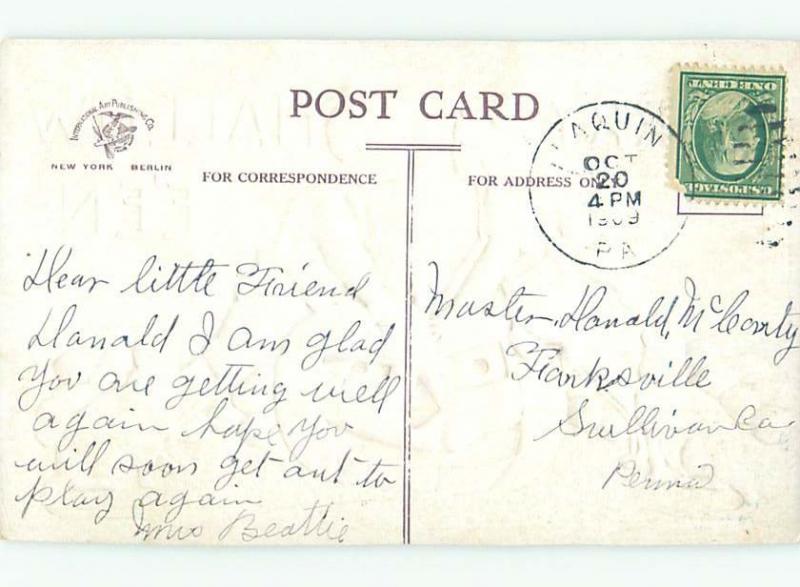 POST CARD
INTERNATIONAL ART PUBLISHING CO.
NEW YORK BERLIN
FOR CORRESPONDENCE
FOR ADDRESS ONLY
LAQUIN
OCT
20
4 PM
1909
PA
U.S. POSTAGE
ONE CENT
Dear little Friend
Donald I am glad
you are getting well
again hope you
will soon get out to
play again
Mrs Beattie
Master Donald McCarty
Forksville
Sullivan Co
Penna